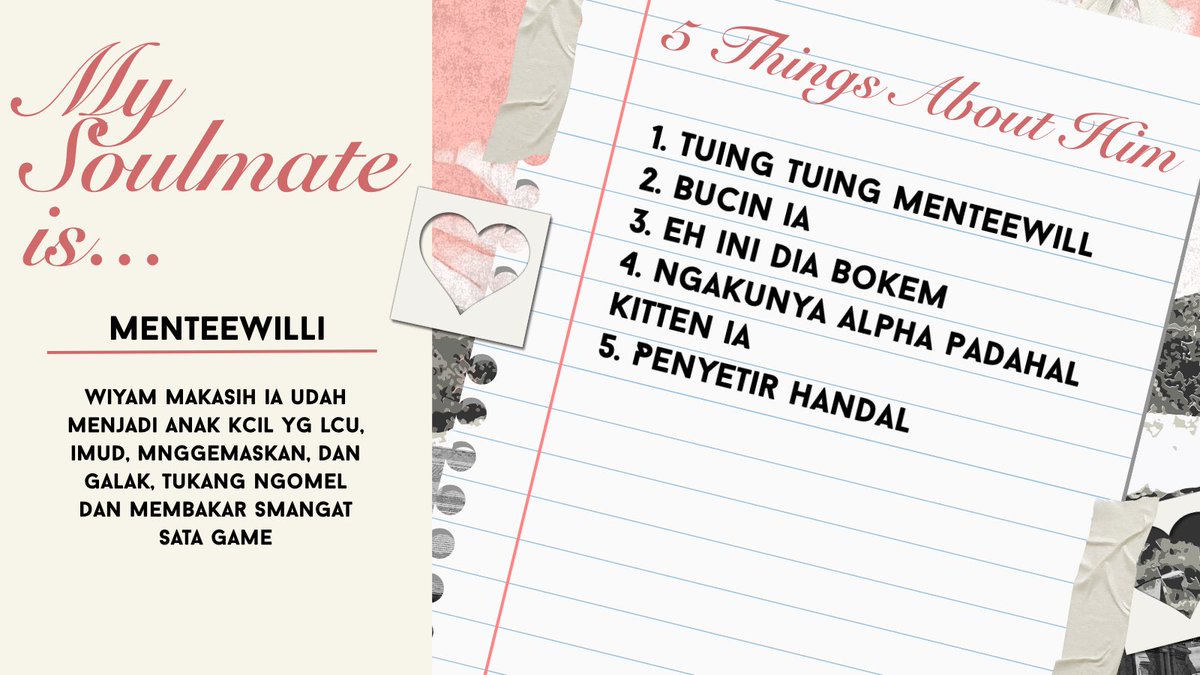 My
Soulmate
is...
MENTEEWILLI
WIYAM MAKASIH IA UDAH
MENJADI ANAK KCIL YG LCU,
IMUD, MNGGEMASKAN, DAN
GALAK, TUKANG NGOMEL
DAN MEMBAKAR SMANGAT
SATA GAME
5 Things About Him
1. TUING TUING MENTEEWILL
2. BUCIN IA
3. EH INI DIA BOKEM
4. NGAKUNYA ALPHA PADAHAL
KITTEN IA
5. PENYETIR HANDAL